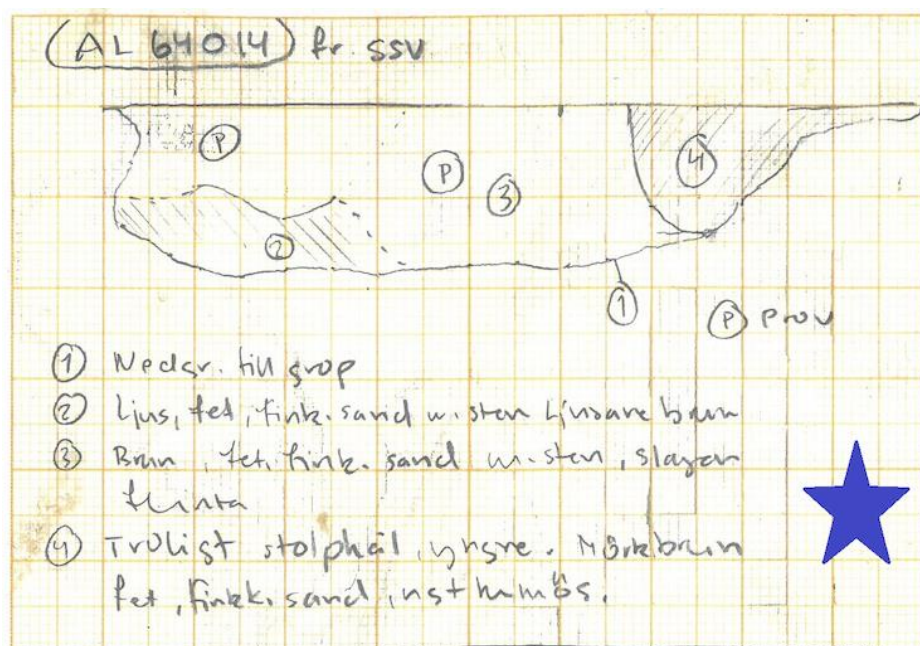 AL 64014 fr. SSV
P
P
3
4
2
1
P Prov
1 Nedgr. till grop
2 Ljus, fet, fink. sand m. sten Ljusare brun
3 Brun, fet, fink. sand m. sten, slagen
flinta
4 Troligt stolphål, yngre. Mörkbrun
fet, fink. sand, humös.